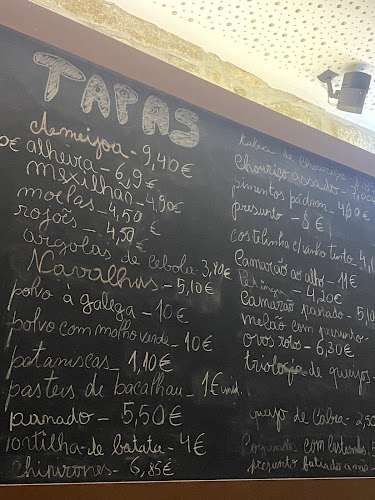 TAPAS
ameijoa - 9,40€
alheira - 6,9€
mexilhão - 4,90€
moelas - 4,50
rojões - 4,50€
argolas de cebola 3,80€
Navalhas - 5,10€
polvo á galega - 10€
polvo com molho verde - 10€
pataniscas 1,10€
pasteis de bacalhau - 1€ unid.
panado - 5,50€
tortilha de batata - 4€
chipirones - 6,85€
de
chouriço assado -
pimentos pádron - 4,60€
presunto - 8€
costelinha c/vinho tinto -
camarão ao alho - 11€
4,20€
camarão panado - 5,10
melão com presunto -
ovos rotos - 6,30€
triologia de queijos -
queijo de cabra - 2,50
com
presunto fatiado a